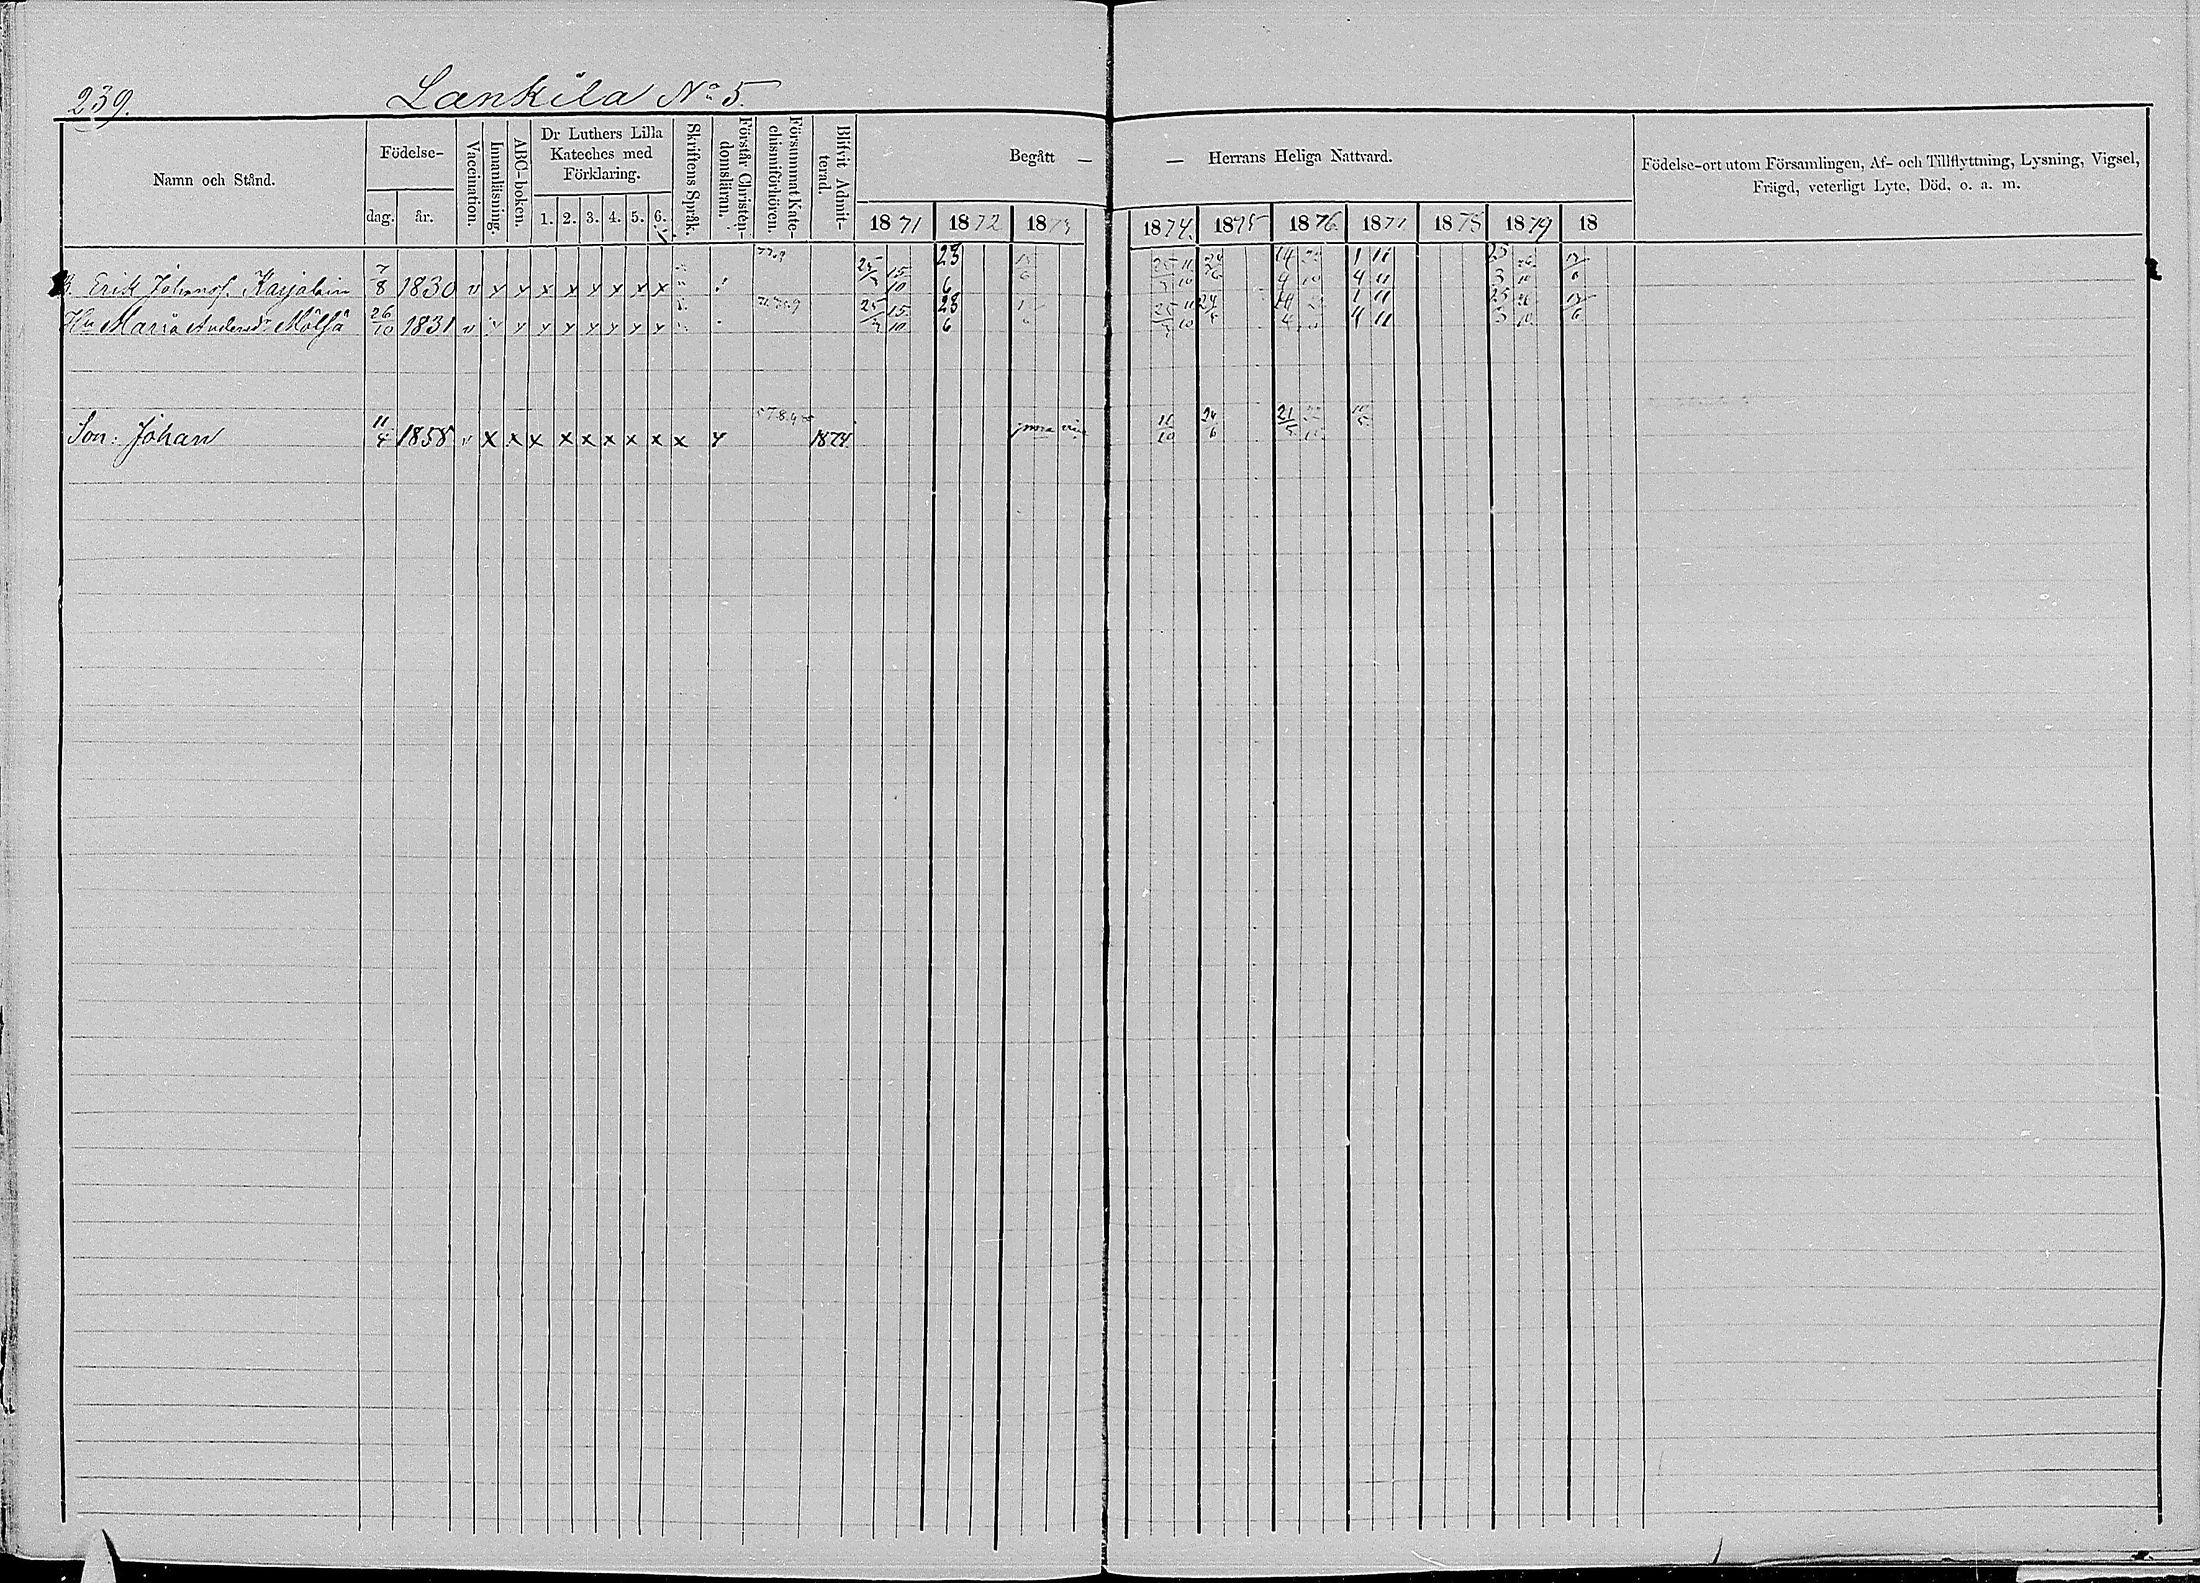 239. Lankila No 5.
Namn och Stånd.
Födelse-
dag. år.
Vaccination.
Innanläsning.
ABC-boken.
Dr Luthers Lilla
Kateches med
Förklaring.
1. 2. 3. 4. 5. 6.
Skriftens Språk.
Förstår Christen-
domsläran.
Försummat Kate-
chismiförhören.
Blifvit Admit-
terad.
Begått — — Herrans Heliga Nattvard.
1871 1872 1873 1874. 1875 1876 1877 1878 1879 18
Födelse-ort utom Församlingen, Af- och Tillflyttning, Lysning, Vigsel,
Frägd, veterligt Lyte, Död, o. a. m.
B. Erik Johanss. Karjalain 7/8 1830 v x x x x x x x x 25 15/10 23/6 25 11/10 24/6 14/4 1/4 11/11 25/3 13/6
Hu Maria Andersdr Mölsä 26/10 1831 v x x x x x x x x 25 15/10 23/6 25 11/10 24/6 14/4 1/4 11/11 25/3 13/6
Son: Johan 11/4 1858 v x x x x x x x x x x 1874. 11/10 24/6 21/5